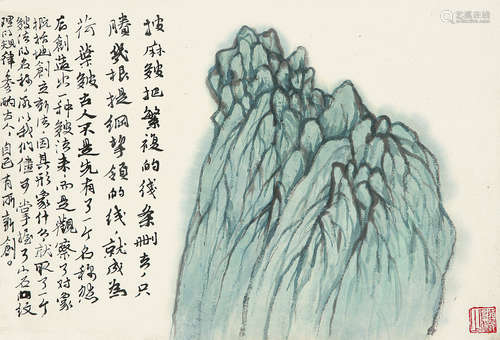 披麻皴把繁複的线条删去，只
賸幾根提綱挈領的线，就成為
荷葉皴古人不是先有了一个名稱然
后創造出一种皴法来，而是觀察了对象
概括地創立新法因其形象什么就取了一个
皴法的名称，所以我们儘可掌握了山石的紋
理的规律，参酌古人，自己有所新創。